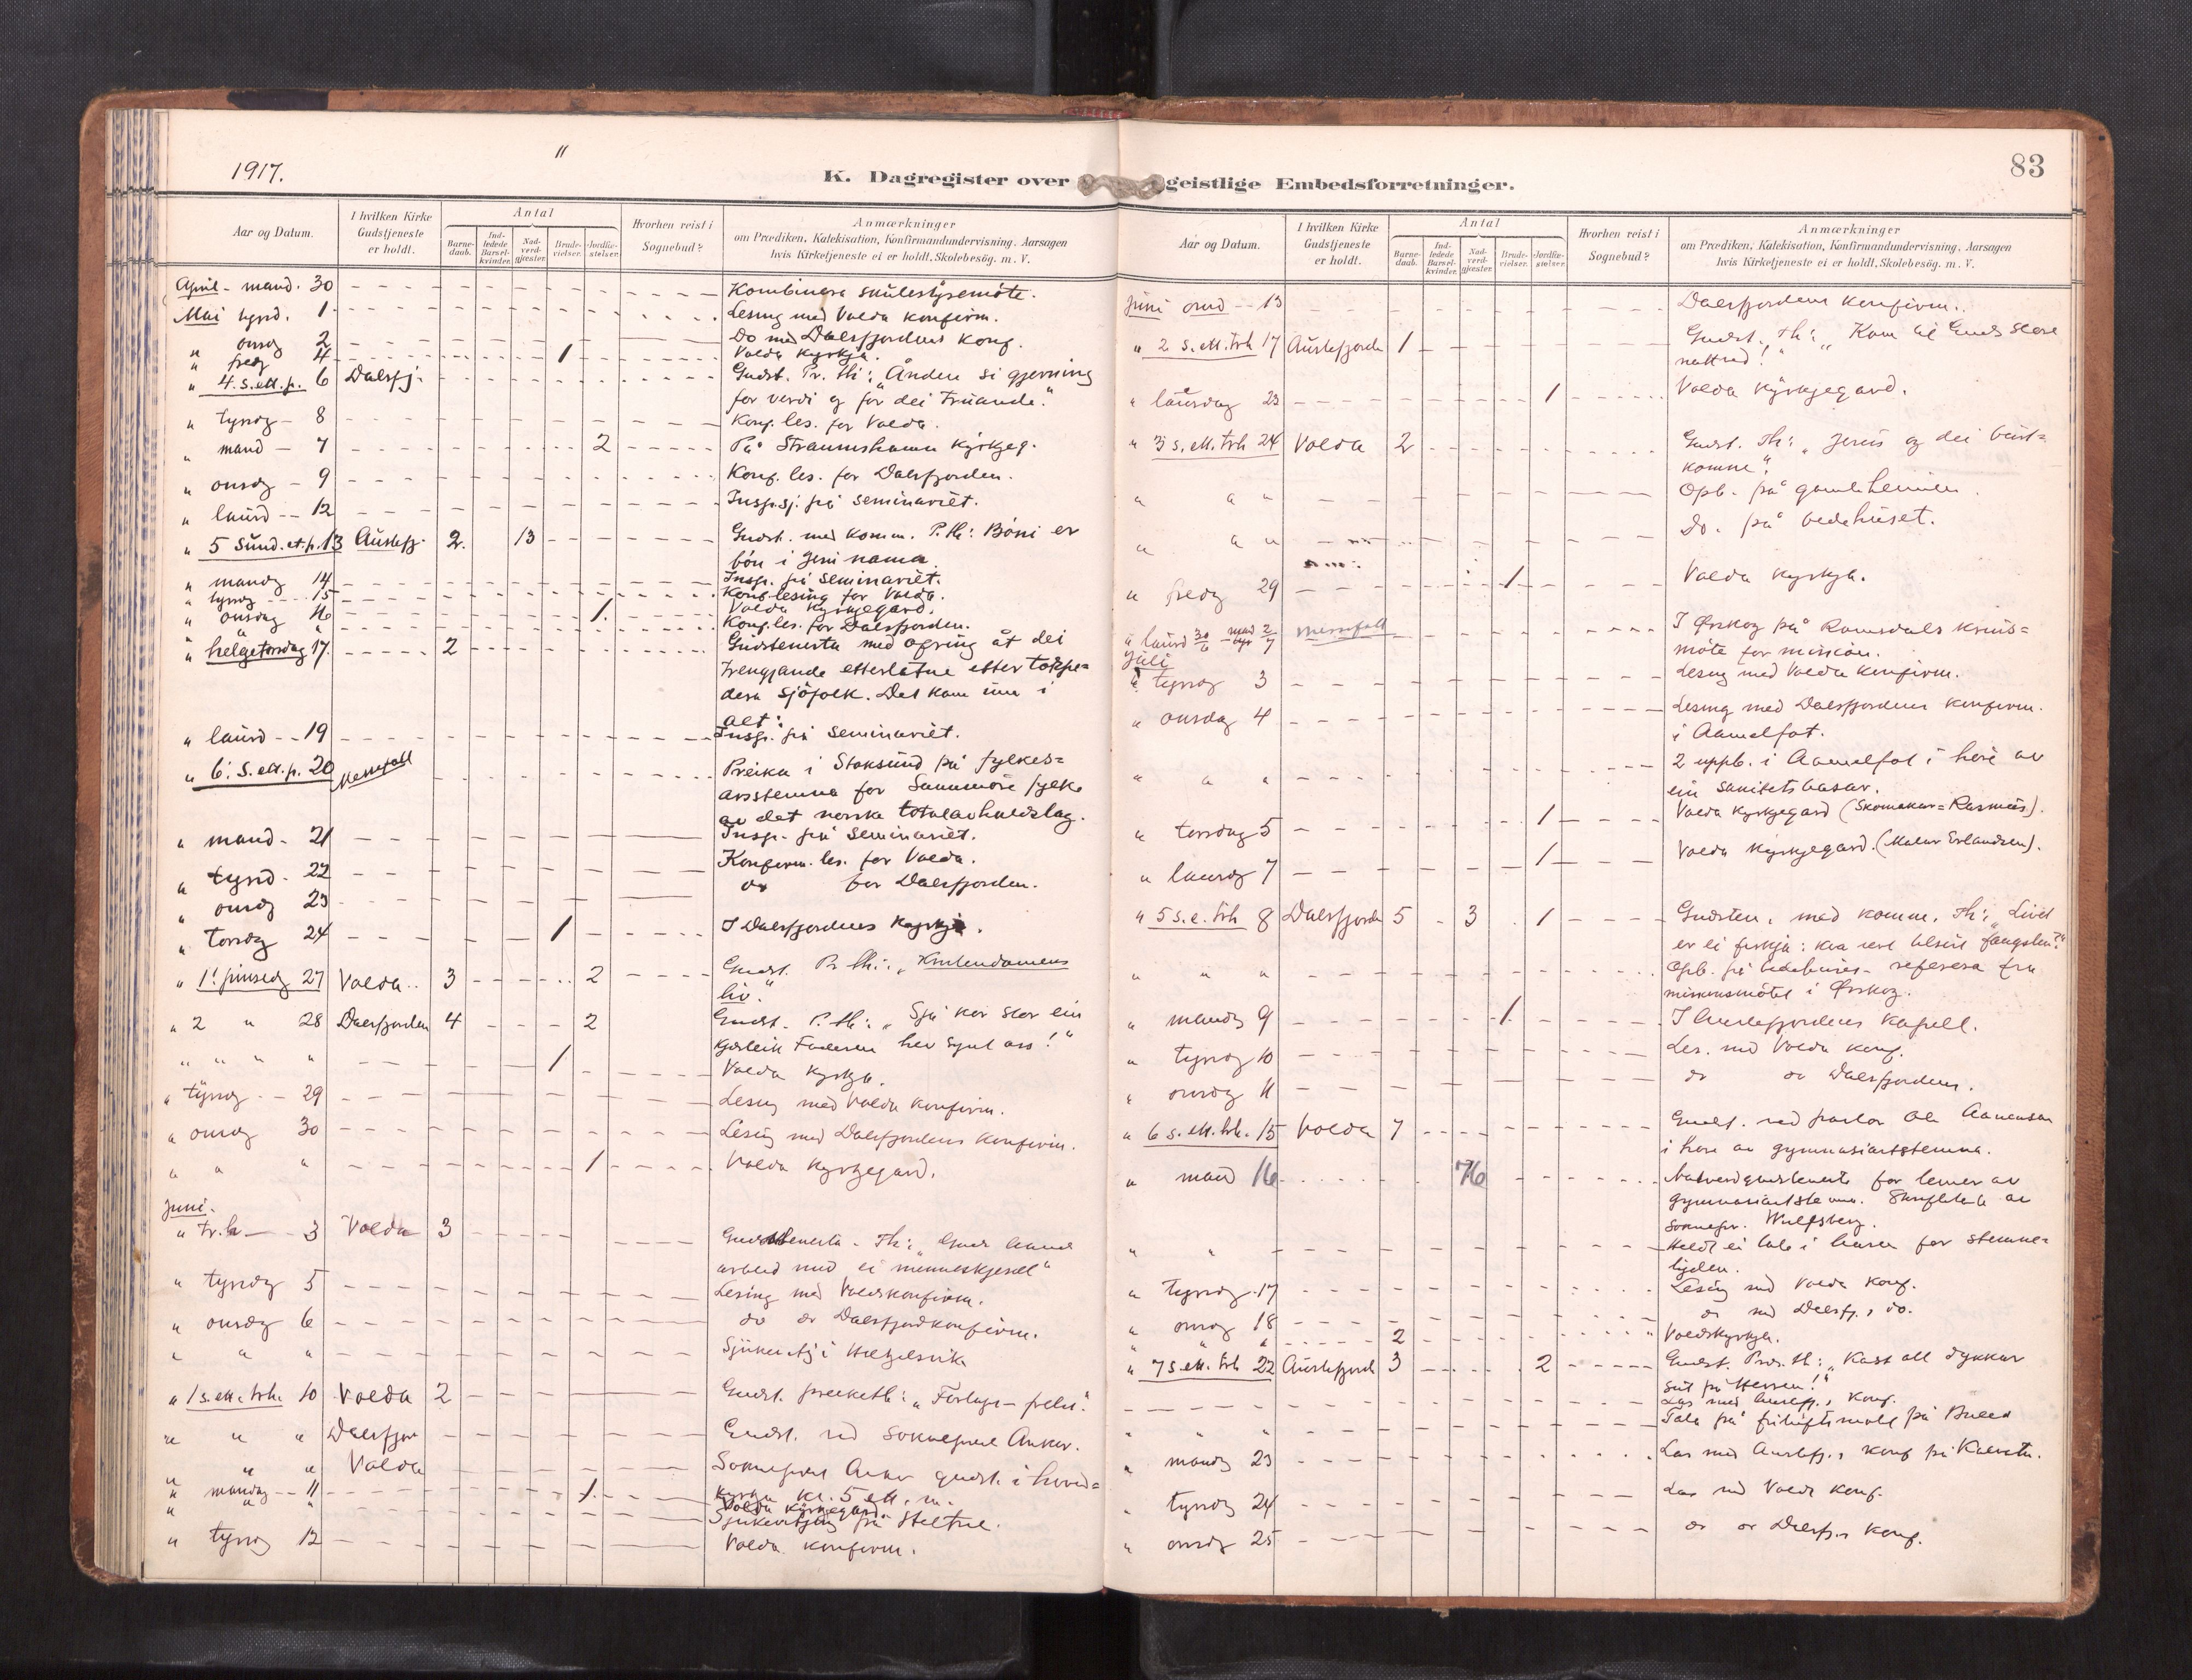 1917.
"
K. Dagregister over
Aar og Datum.
I hvilken Kirke Gudstjeneste er holdt.
Antal
Barne-daab.
Ind-ledede Barsel-kvinder.
Nad-verd-gjæster.
Brude-vielser.
Jordfæ-stelser.
Hvorhen reist i Sognebud?
Anmærkninger
om Prædiken, Katekisation, Konfirmandundervisning, Aarsagen
hvis Kirketjeneste ei er holdt, Skolebesøg. m. V.
April - mand. 30 Kombinera skulestyremöte.
Mai tysd. 1 Lesing med Volda konfirm.
" onsdg 2 Do med Dalsfjordens konf.
" fredg 4 1 Volda kyrkja.
" 4. s. ett. p. 6 Dalsfj. Gudst. Pr. th: "Anden si gjerning
for verdi og for dei truande."
" tysdg 8 Konf. les. for Volda.
" mand 7 2 På Straumshamn kyrkjeg.
" onsdg 9 Konf. les. for Dalsfjorden.
" laurd 12 Insp.sj. på seminariet.
" 5 Sund. et. p. 13 Austefj. 2. 13 Gudst. med komm. P. th: Böni er
bön i Jesu namn.
" mandg 14 Insp. på seminariet.
" tysdg 15 Konf. lesing for Volda.
" onsdag 16 1. Volda kyrkjegard.
" " " Konf. les. for Dalsfjorden.
" helgetorsdag 17. 2 Gudstenesta med ofring åt dei
trengjande etterlatne etter torpe=
dera sjöfolk. Det kom inn i
alt:
" laurd 19 Insp. på seminariet.
" 6. s. ett. p. 20 Messefall Preika i Staksund på fylkes=
årsstemna for Sunnmöre fylke
av det norska totalavhaldslag.
" mand. 21 Insp. på seminariet.
" tysd. 22 Konfirm. les. for Volda.
" onsdg 23 do for Dalsfjorden.
" torsdg 24 1 I Dalsfjordens kyrkja.
" 1! pinsedg 27 Volda 3 2 Gudst. Pr. th: "Kristendomens
liv."
" 2 " 28 Dalsfjorden 4 2 Gudst. P. th: "Sjå kor stor ein
kjærleik Faderen hev synt oss!"
" " " " 1 Volda kyrkja.
" tysdg 29 Lesing med Volda konfirm.
" onsdg 30 Lesing med Dalsfjordens konfirm.
" " " 1 Volda kyrkjegard.
Juni.
" tr. h 3 Volda 3 Gudstenesta. Th: "Guds Aands
arbeid med ei menneskjesjel"
" tysdg 5 Lesing med Voldskonfirm.
" onsdg 6 do do Dalsfjordkonfirm.
" " "
" 1 s. ett. trh. 10 Volda 2 Gudst. preiketh: "Fortapt - frelst."
" " " Dalsfjor Gudst. ved sokneprest Anker.
" " " Volda Sokneprest Anker gudst. i hovud=
kyrkja kl. 5 ett. m.
" mandag 11 1. Volda kyrkjegard.
" " "
" tysdg 12 Volda konfirm.
83
geistlige Embedsforretninger.
Aar og Datum.
I hvilken Kirke Gudstjeneste er holdt.
Antal
Barne-daab.
Ind-ledede Barsel-kvinder.
Nad-verd-gjæster.
Brude-vielser.
Jordfæ-stelser.
Hvorhen reist i Sognebud?
Anmærkninger
om Prædiken, Katekisation, Konfirmandundervisning, Aarsagen
hvis Kirketjeneste ei er holdt, Skolebesøg. m. V.
Juni onsd 13 Dalsfjordens konfirm.
" 2 s. ett. trh 17 Austefjorden 1 Gudst. Th: "Kom til Guds store
nattverd!"
" laursdag 23 1 Volda kyrkjegard.
" 3 s. ett. trh 24 Volda 2 Gudst. Th: "Jesus og dei burt=
komne".
" " " Opb. på gamleheimen.
" " " Do. på bedehuset.
" fredg 29 1 Volda kyrkja.
" laurd 30/6 - mand 2/7 messefall I Ørskog på Romsdals krins=
möte for misjon.
Juli
" tysdag 3 Lesing med Volda konfirm.
" onsdag 4 Lesing med Dalsfjordens konfirm.
i Aamelfot.
" " " 2 uppb. i Aamelfot i höve av
ein sanitetsbasar.
" torsdag 5 1 Volda kyrkjegard (Skomakar=Rasmus).
" laurdg 7 1 Volda kyrkjegard. (Malar Erlandsen).
" 5 s. e. trh 8 Dalsfjorden 5 3 1 Gudsten. med komm. Th: "Livet
er ei fiskja: kva vert tilsist fangsten?"
" " " Opb. på bedehuset - referera fra
misjonsmötet i Ørskog.
" mandg 9 1. I Austefjordens kapell.
" tysdg 10 Les. med Volda konf.
" onsdg 11 do do Dalsfjordens.
" 6 s. ett. trh. 15 Volda 7 Gudst. ved pastor Ole Aanensen
i höve av gymnasiaststemna.
" mand 16 76 Nattverdgudstenesta for lemer av
gymnasiaststemna. Skriftetale av
soknepr. Wulfsberg.
" " Heldt ei tale i kyrkja for stemne=
lyden.
" tysdg 17 Lesing med Volda konf.
" onsdg 18 do med Dalsfj.s do.
" " " 2 Voldskyrkja.
" 7 s. ett. trh 22 Austefjord 3 2 Gudst. Prd. th: "Kast all dykkar
sut på Herren!"
Las med Austefj.s konf.
" " " Tala på friluftsmöte på
" mandg 23 Las med Austefj.s konf på
" tysdg 24 Las med Volda konf.
" onsdg 25 do do Dalsfj.s konf.